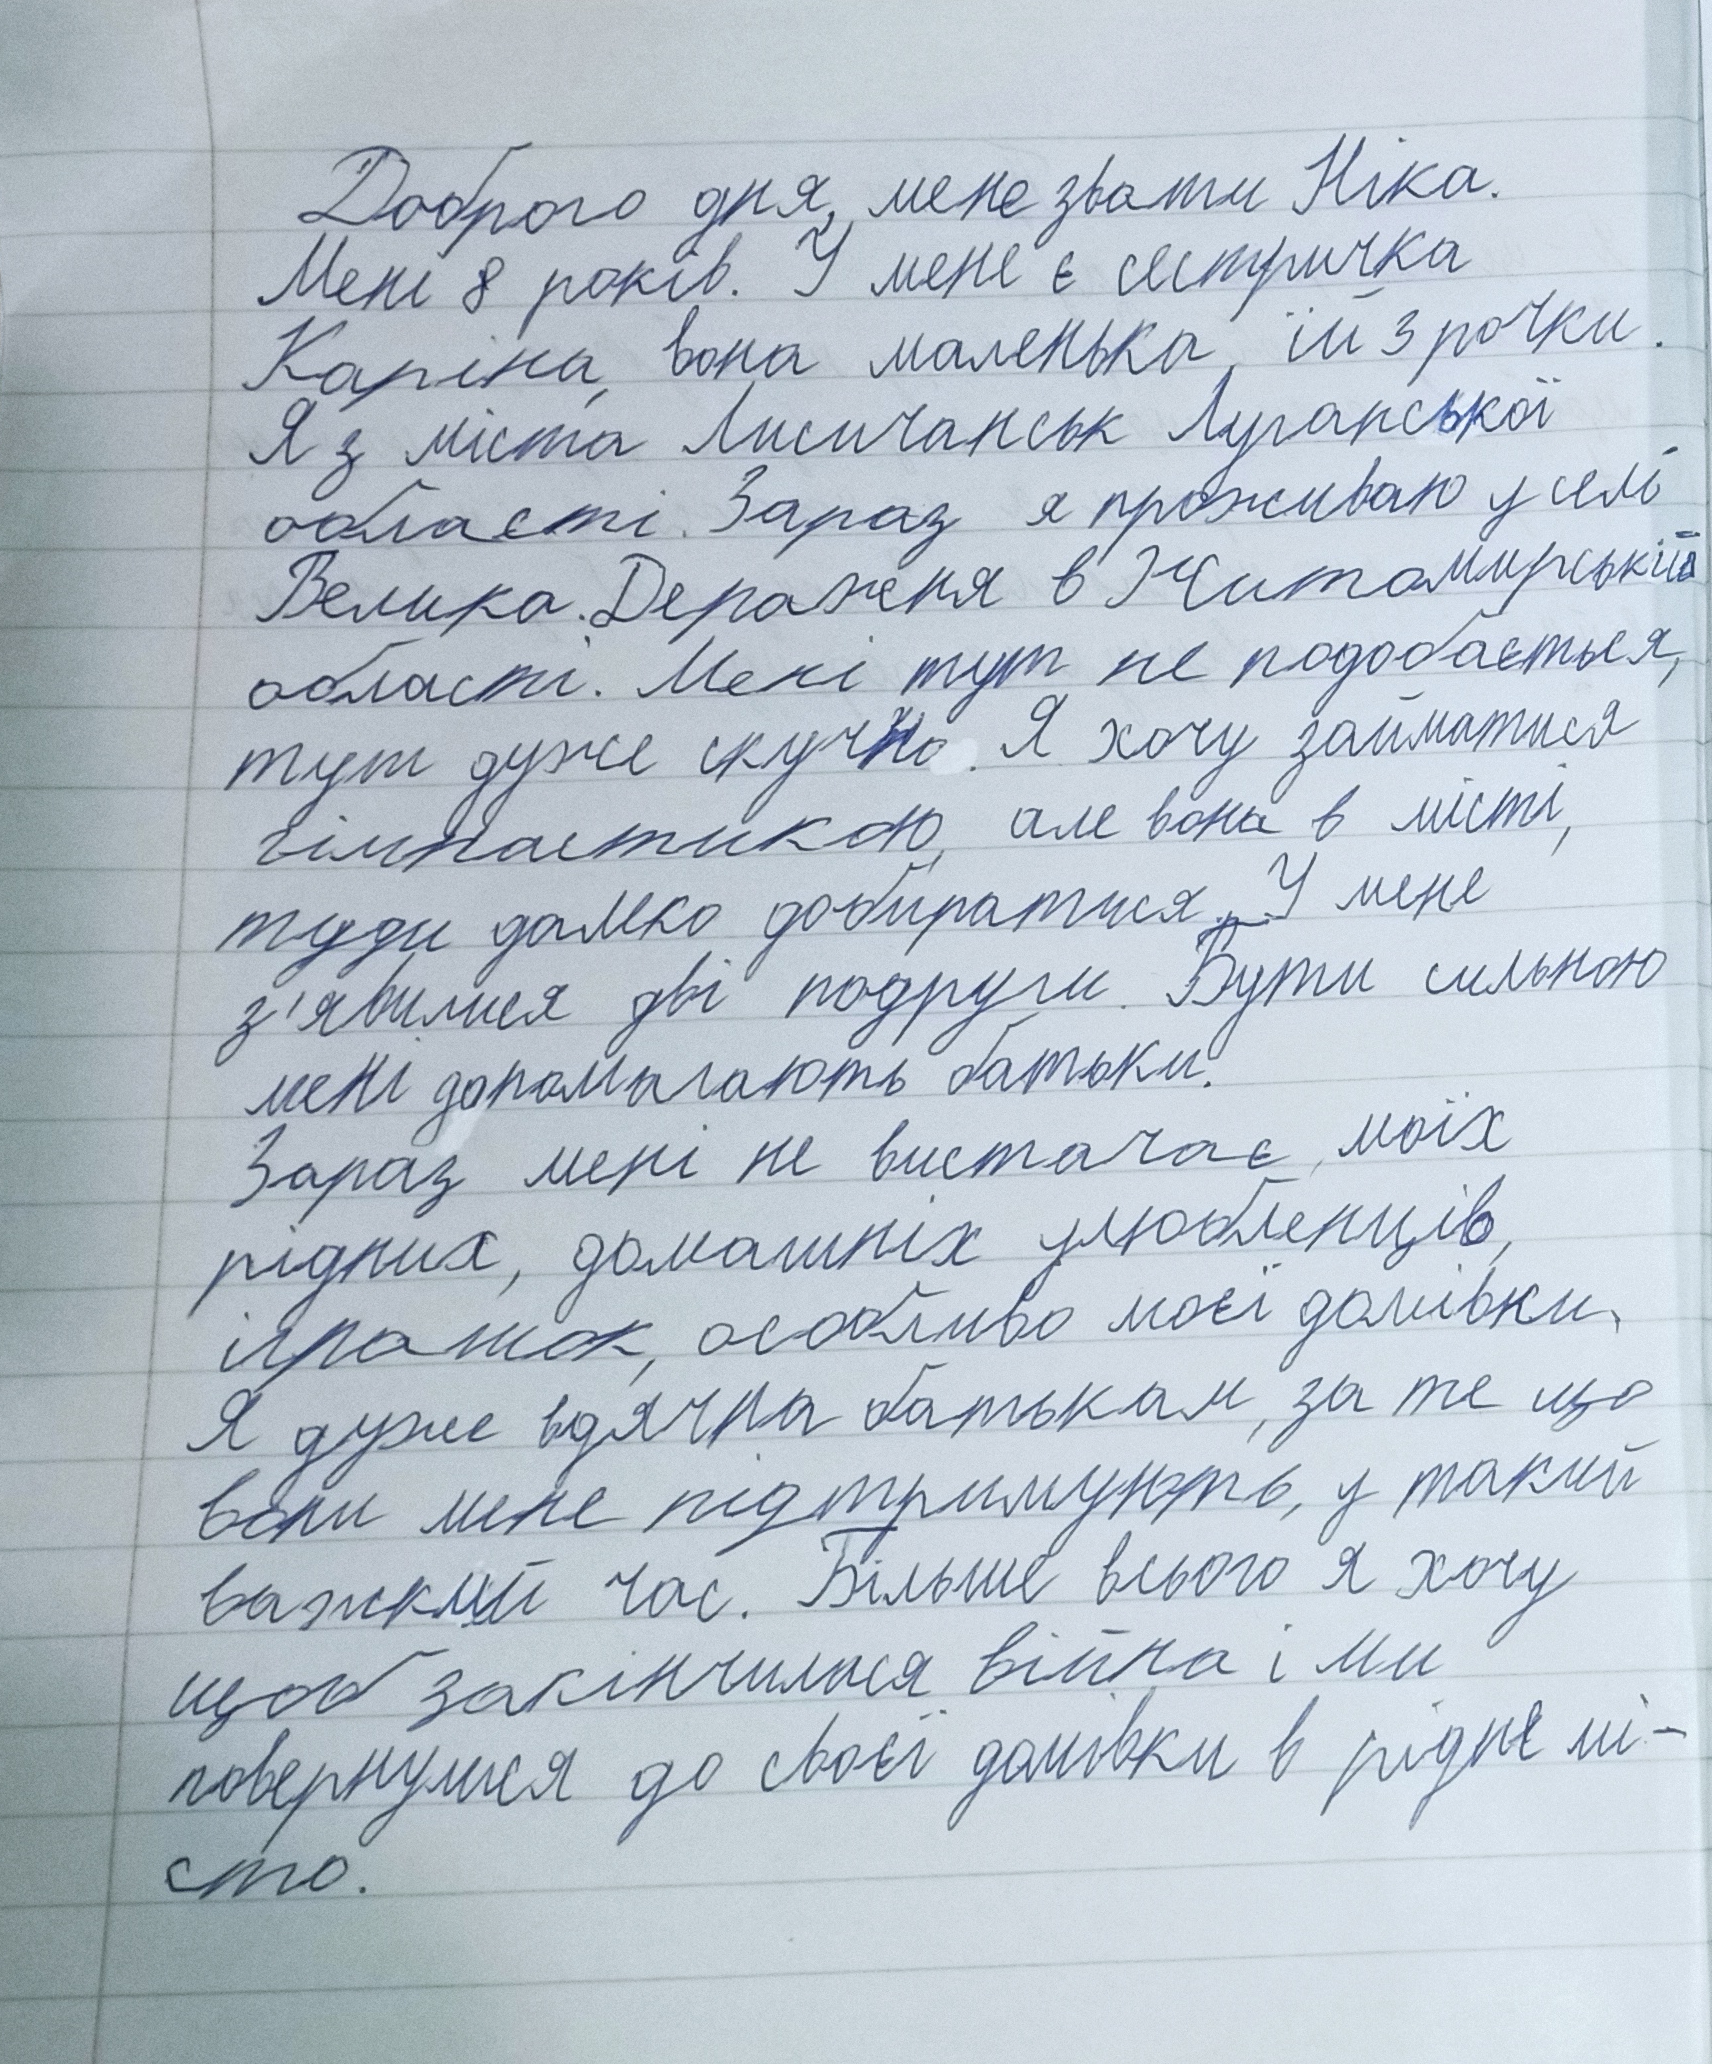 Доброго дня, мене звати Ніка.
Мені 8 років. У мене є сестричка
Каріна, вона маленька, їй 3 рочки.
Я з міста Лисичанськ Луганської
області. Зараз я проживаю у селі
Велика Деражня в Житомирській
області. Мені тут не подобається,
тут дуже скучно. Я хочу займатися
гімнастикою, але вона в місті,
туди далеко добиратися. У мене
з'явилися дві подруги. Бути сильною
мені допомагають батьки.
Зараз мені не вистачає моїх
рідних, домашніх улюбленців,
іграшок, особливо моєї домівки.
Я дуже вдячна батькам, за те що
вони мене підтримують, у такий
важкий час. Більше всього я хочу
щоб закінчилася війна і ми
повернулися до своєї домівки в рідне мі-
сто.